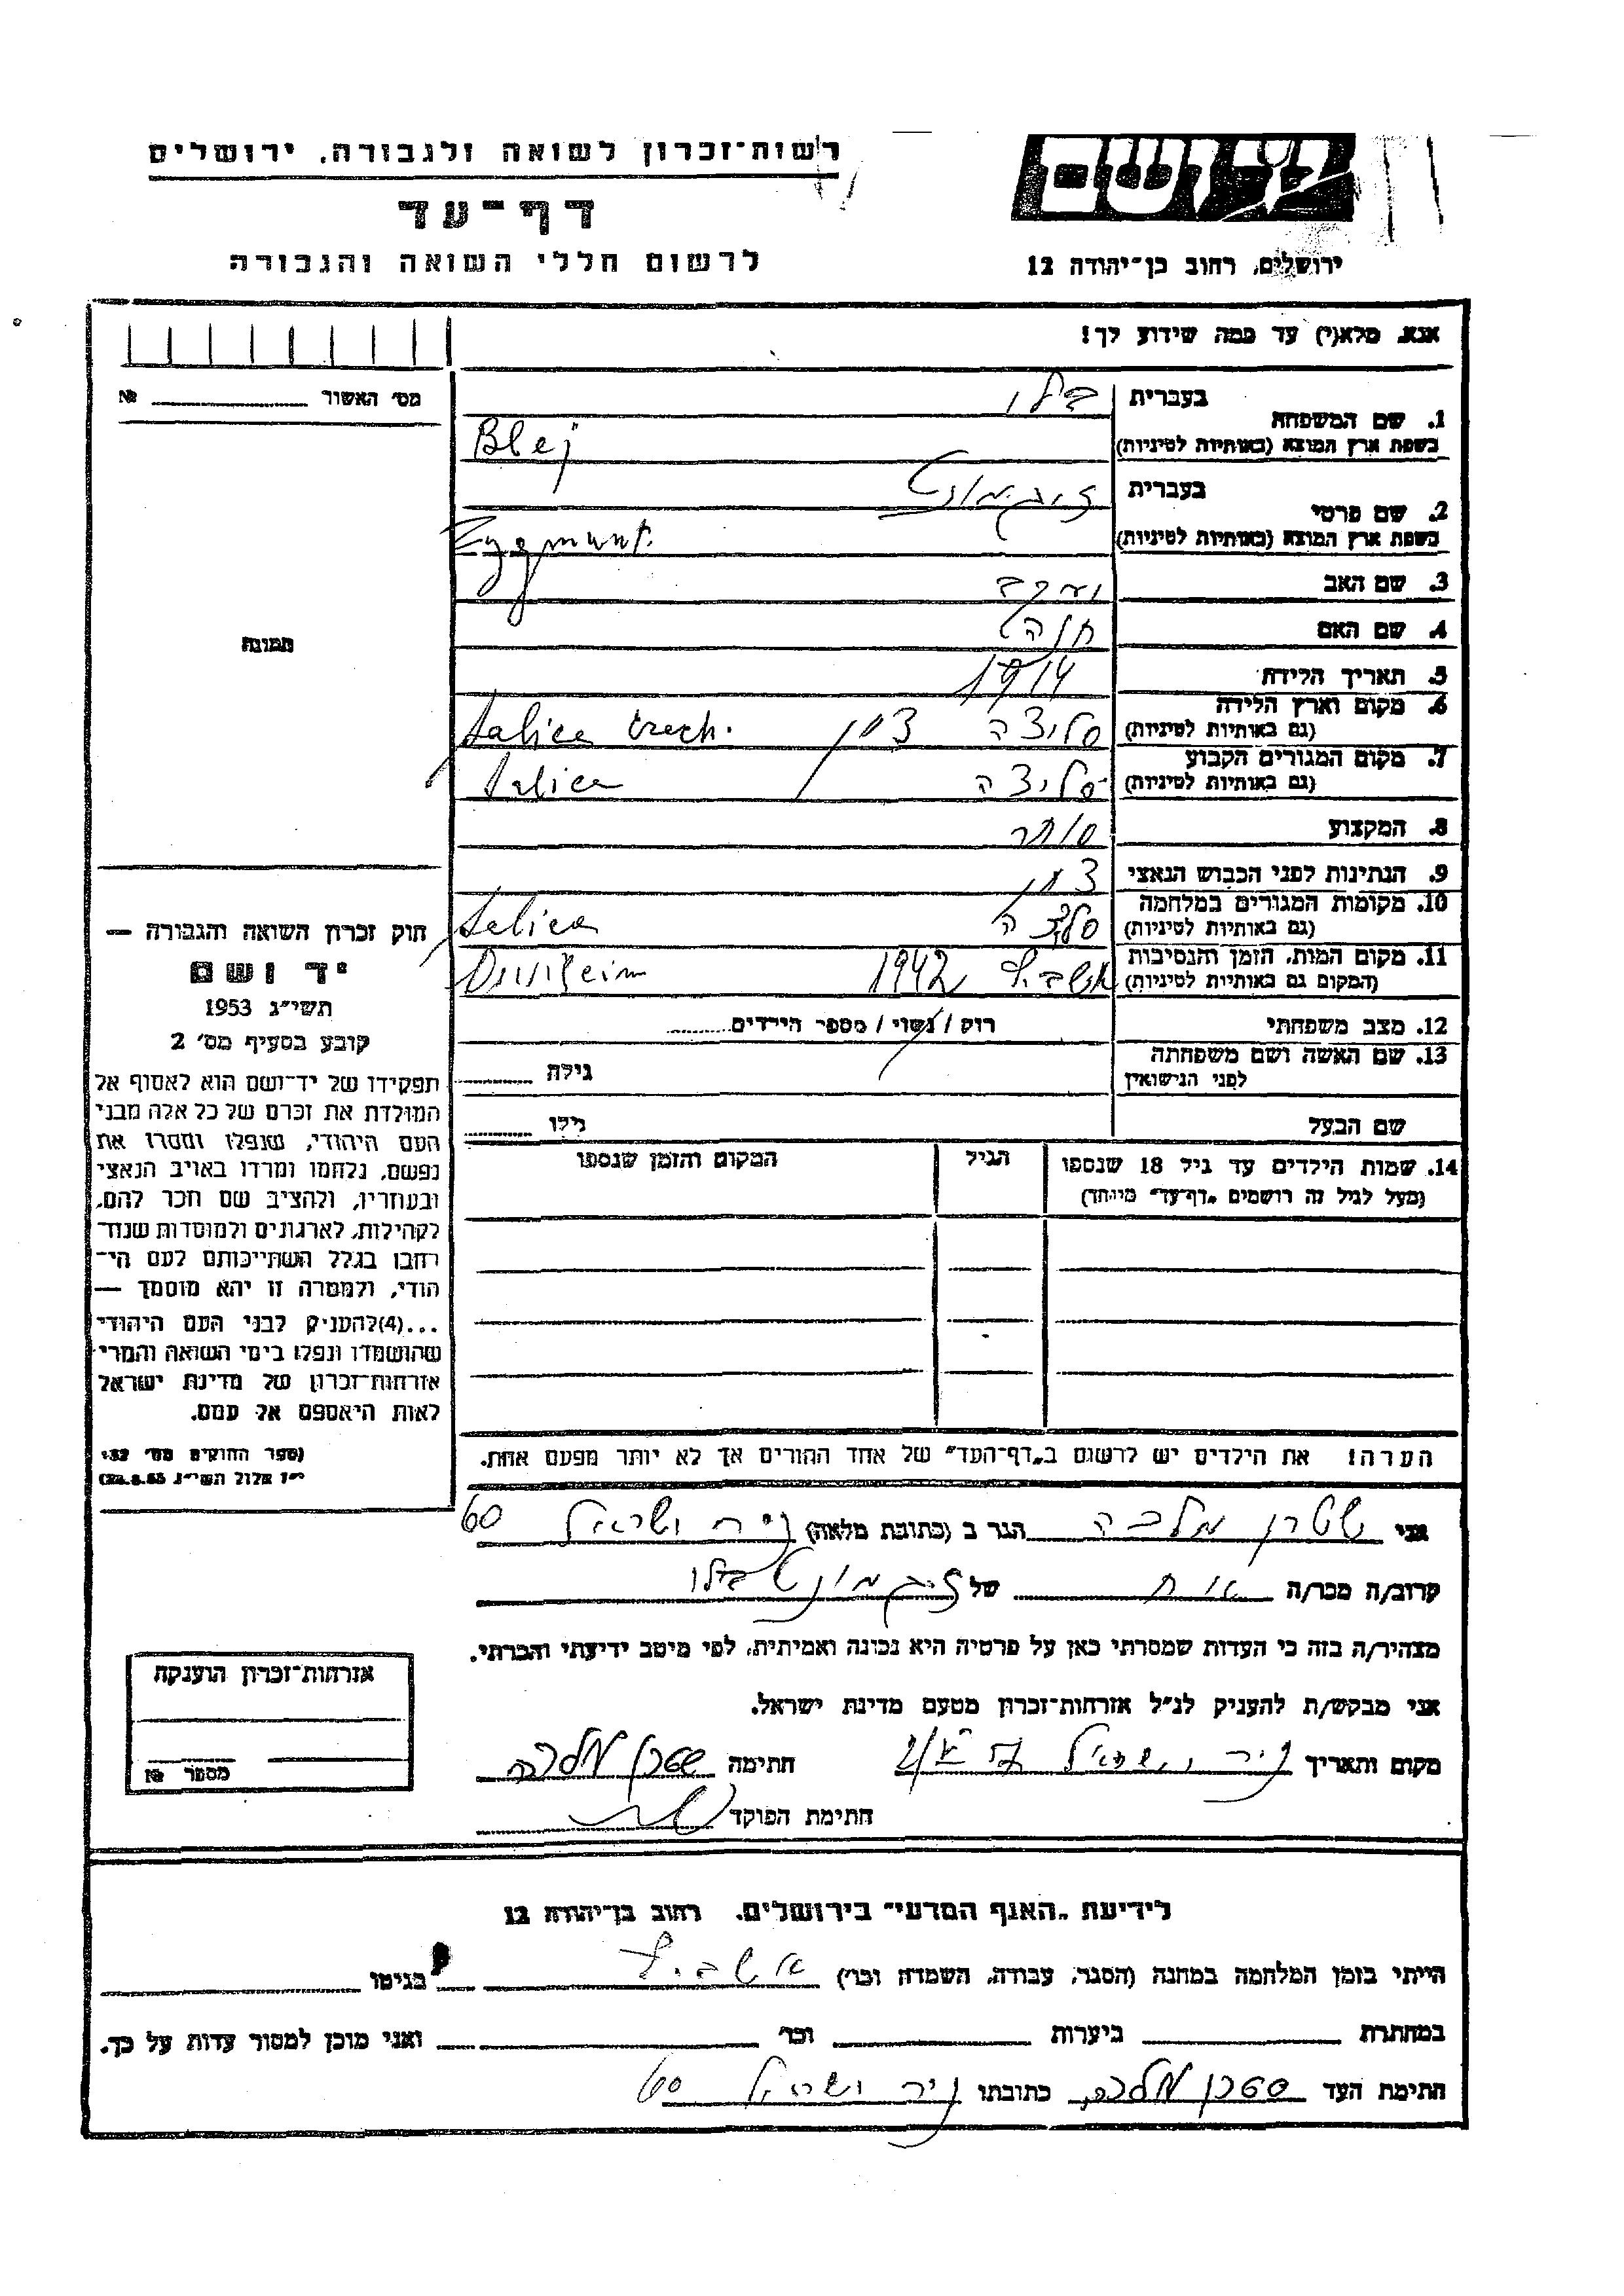 רשות־זכרון לשואה ולגבורה, ירושלים
דף־עד
לרשום חללי השואה והגבורה
יד ושם
ירושלים, רחוב בן־יהודה 12
אנא, מלא(י) עד כמה שידוע לך!
מס׳ האשור № 
1. שם המשפחה
בעברית בלי
בשפת ארץ המוצא (באותיות לטיניות) Blej
2. שם פרטי
בעברית זיגמונט
בשפת ארץ המוצא (באותיות לטיניות) Zygmunt.
3. שם האב יעקב
4. שם האם חנה
5. תאריך הלידה 1914
6. מקום וארץ הלידה
(גם באותיות לטיניות) סליצה צ׳כ׳ Salica czech.
7. מקום המגורים הקבוע
(גם באותיות לטיניות) סליצה Salica
8. המקצוע סוחר
9. הנתינות לפני הכבוש הנאצי
10. מקומות המגורים במלחמה
(גם באותיות לטיניות) סליצה Salica
11. מקום המות, הזמן והנסיבות
(המקום גם באותיות לטיניות) אושביץ 1942
12. מצב משפחתי רווק / נשוי / מספר הילדים
13. שם האשה ושם משפחתה
לפני הנישואין גילה
שם הבעל גילו
14. שמות הילדים עד גיל 18 שנספו
(מעל לגיל זה רושמים „דף־עד” מיוחד)
הגיל
המקום והזמן שנספו
תמונה
חוק זכרון השואה והגבורה —
יד ושם
תשי״ג 1953
קובע בסעיף מס׳ 2
תפקידו של יד־ושם הוא לאסוף אל
המולדת את זכרם של כל אלה מבני
העם היהודי, שנפלו ומסרו את
נפשם, נלחמו ומרדו באויב הנאצי
ובעוזריו, ולהציב שם וזכר להם,
לקהילות, לארגונים ולמוסדות שנח־
רבו בגלל השתייכותם לעם הי־
הודי, ולמטרה זו יהא מוסמך —
...(4)להעניק לבני העם היהודי
שהושמדו ונפלו בימי השואה והמרי
אזרחות־זכרון של מדינת ישראל
לאות היאספם אל עמם.
(ספר החוקים מס׳ 132,
י״ז אלול תשי״ג 28.8.53)
הערה! את הילדים יש לרשום ב„דף־העד” של אחד ההורים אך לא יותר מפעם אחת.
אני שטרן מלכה הגר ב (כתובת מלאה) ניר ישראל 60
קרוב/ה מכר/ה אחות של זיגמונט בלי
מצהיר/ה בזה כי העדות שמסרתי כאן על פרטיה היא נכונה ואמיתית, לפי מיטב ידיעתי והכרתי.
אני מבקש/ת להעניק לנ״ל אזרחות־זכרון מטעם מדינת ישראל.
מקום ותאריך ניר ישראל חתימה שטרן מלכה
חתימת הפוקד
אזרחות־זכרון הוענקה
מספר №
לידיעת „האגף המדעי” בירושלים, רחוב בן־יהודה 12
הייתי בזמן המלחמה במחנה (הסגר, עבודה, השמדה וכו׳) אושביץ בגיטו
במחתרת ביערות וכו׳ ואני מוכן למסור עדות על כך.
חתימת העד שטרן מלכה, כתובתו ניר ישראל 60